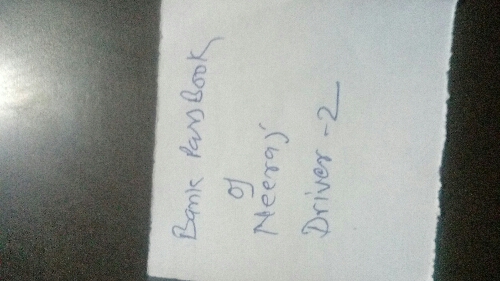 Bank PassBook
of
Neeraj
Driver - 2